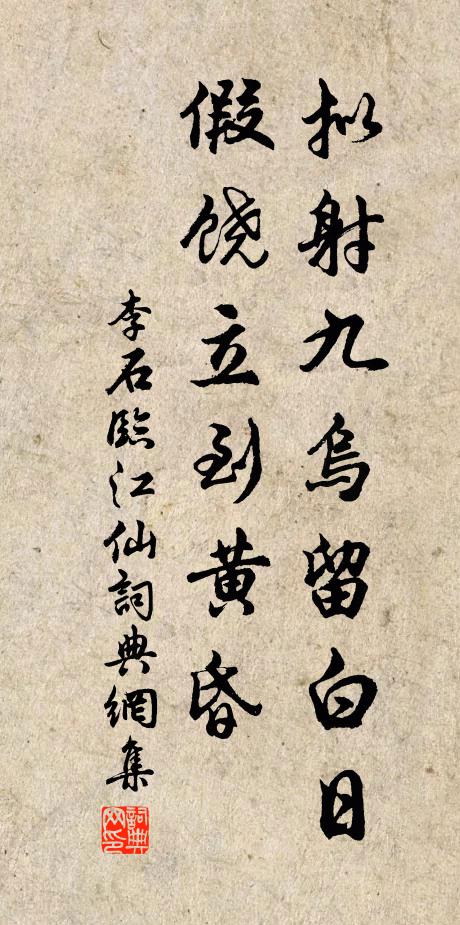 拟射九烏留白日
假饶立到黄昏
李石臨江仙詞典網集
詞典网印